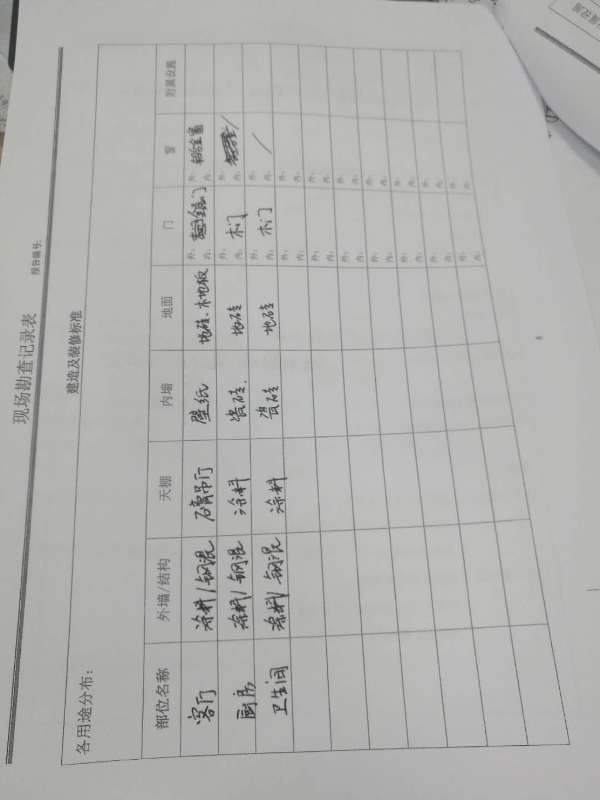 现场勘查记录表
报告编号:
建造及装修标准
各用途分布:
部位名称 外墙/结构 天棚 内墙 地面 门 窗 附属设施
客厅 涂料/钢混 石膏吊门 壁纸 地砖、木地板 外: 内: 外: 铝合金窗 内:
厨房 涂料/钢混 涂料 瓷砖. 地砖 外: 木门 内: 外: / 内:
卫生间 涂料/钢混 涂料 瓷砖 地砖 外: 木门 内: 外: / 内:
外: 内: 外: 内:
外: 内: 外: 内:
外: 内: 外: 内:
外: 内: 外: 内:
外: 内: 外: 内:
外: 内: 外: 内:
外: 内: 外: 内: